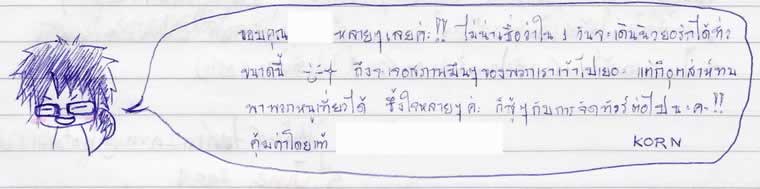 ขอบคุณ หลายๆเลยค่ะ!! ไม่น่าเชื่อว่าใน 1 วันจะเดินนิวยอร์กได้ทั่ว
ขนาดนี้ ถึงจะเจอสภาพมึนๆของพวกเราเข้าไปเยอะ แต่ก็อุตส่าห์ทน
พาพวกหนูเที่ยวได้ ซึ้งใจหลายๆค่ะ ก็สู้ๆกับการจัดทัวร์ต่อไปนะคะ!!
คุ้มค่าโดยแท้ KORN